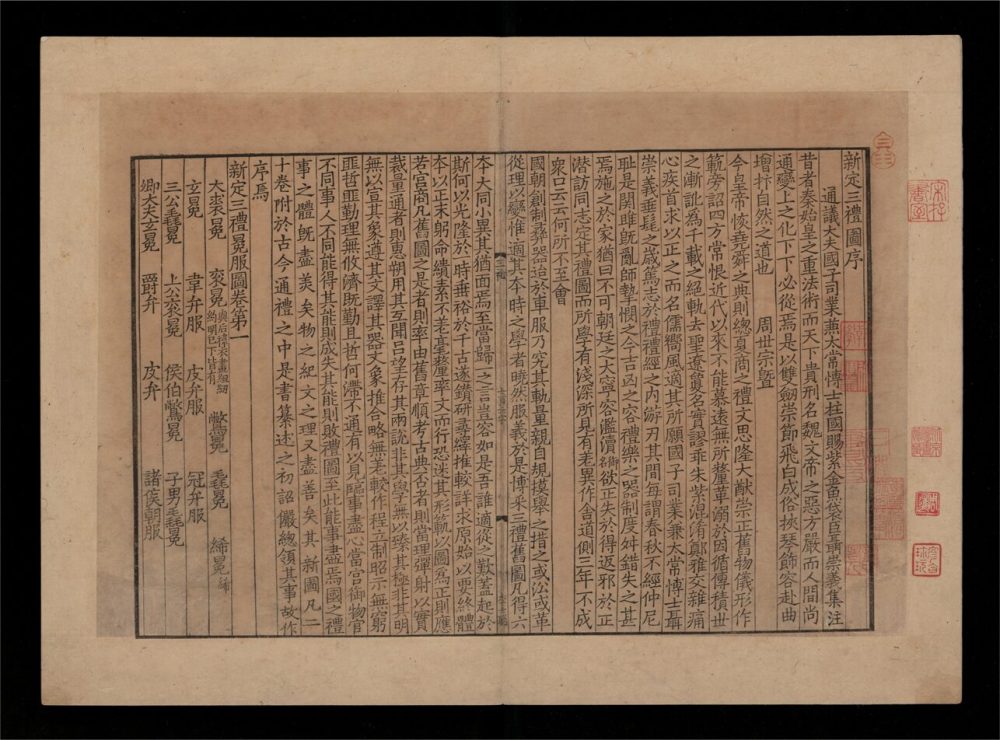 新定三禮圖序
通議大夫國子司業兼太常博士柱國賜紫金魚袋臣聶崇義集注
昔者秦始皇之重法術而天下貴刑名魏文帝之惡方嚴而人間尚
通變上之化下下必從焉是以雙劒崇節飛白成俗挾琴飾容赴曲
增抃自然之道也 周世宗曁
今皇帝恢堯舜之典則總夏商之禮文思隆大猷崇正舊物儀形作
範旁詔四方常恨近代以來不能慕遠無所釐革溺於因循傳積世
之漸訛爲千載之絕軌去聖遼夐名實謬乖朱紫混淆鄭雅交雜痛
心疾首求以正之而名儒嚮風適其所願國子司業兼太常博士聶
崇義垂髦之歳篤志於禮禮經之內游刃其間每謂春秋不經仲尼
耻是關雎旣亂師摯憫之今吉凶之容禮樂之器制度舛錯失之甚
焉施之於家猶曰不可朝廷之大寧容濫瀆欲正失於得返邪於正
潜訪同志定其禮圖而所學有淺深所見有差異作舎道側三年不成
衆口云云何所不至會
國朝創制彝器迨於車服乃究其軌量親自規摸舉之措之或㳂或革
從理以變惟適其本時之學者曉然服義於是博采三禮舊圖凡得六
本大同小異其猶面焉至當歸一之言豈容如是吾誰適從之歎蓋起於
斯何以光隆於一時垂裕於千古遂鑚研尋繹推較詳求原始以要終體
本以正末躬命繢素不差毫釐率文而行恐迷其形範以圖爲正則應
若宮商凡舊圖之是者則率由舊章順考古典否者則當理彈射以實
裁量通者則惠朔用其互聞呂望存其兩說非其學無以臻其極非其明
無以宣其象遵其文譯其器文象推合略無差較作程立制昭示無窮
匪哲匪勤理無攸濟旣勤且哲何滯不通有以見臨事盡心當官御物官
不同事人不同能得其能則成失其能則敗禮圖至此能事盡焉國之禮
事之體旣盡美矣物之紀文之理又盡善矣其新圖凡二
十卷附於古今通禮之中是書纂述之初詔儼總領其事故作
序焉
新定三禮冕服圖卷第一
大裘冕 衮冕 鷩冕 毳冕 絺冕
玄冕 韋弁服 皮弁服 冠弁服
三公毳冕 上公衮冕 侯伯鷩冕 子男毳冕
卿大夫玄冕 爵弁 皮弁 諸侯朝服